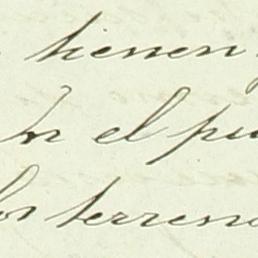 tienen
en el pu
los terreno